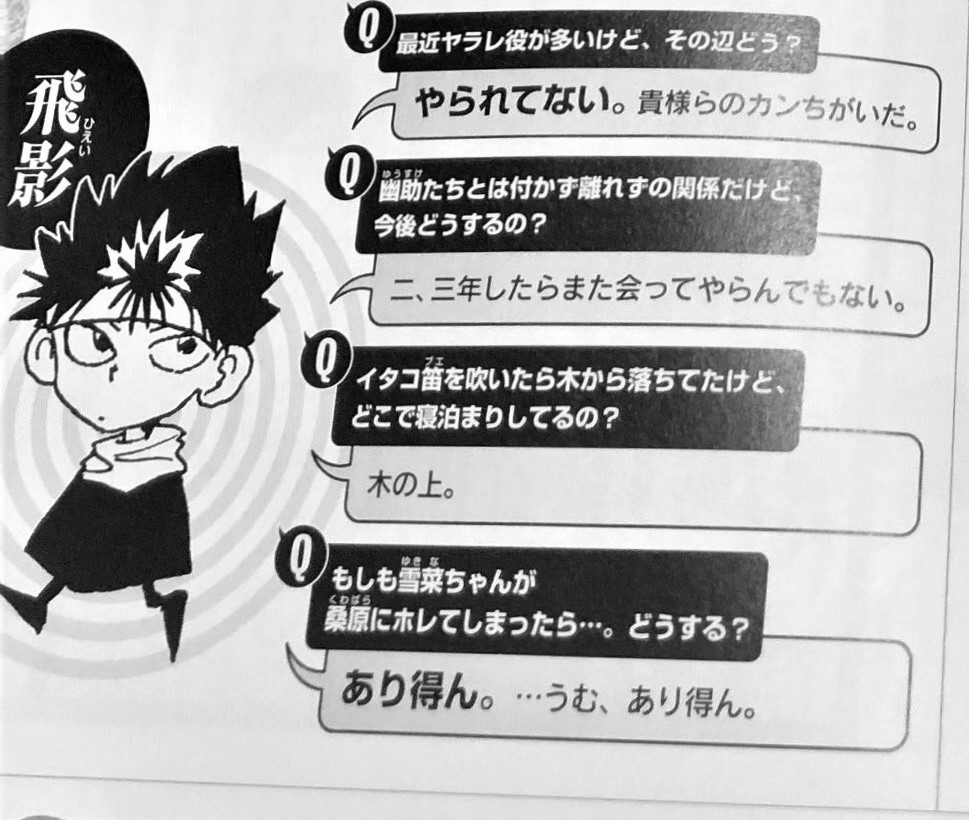 飛影
ひえい
Q
最近ヤラレ役が多いけど、その辺どう?
やられてない。貴様らのカンちがいだ。
Q
ゆうすけ
幽助たちとは付かず離れずの関係だけど、
今後どうするの?
二、三年したらまた会ってやらんでもない。
Q
ブエ
イタコ笛を吹いたら木から落ちてたけど、
どこで寝泊まりしてるの?
木の上。
Q
ゆきな
もしも雪菜ちゃんが
くわばら
桑原にホレてしまったら…。どうする?
あり得ん。…うむ、あり得ん。